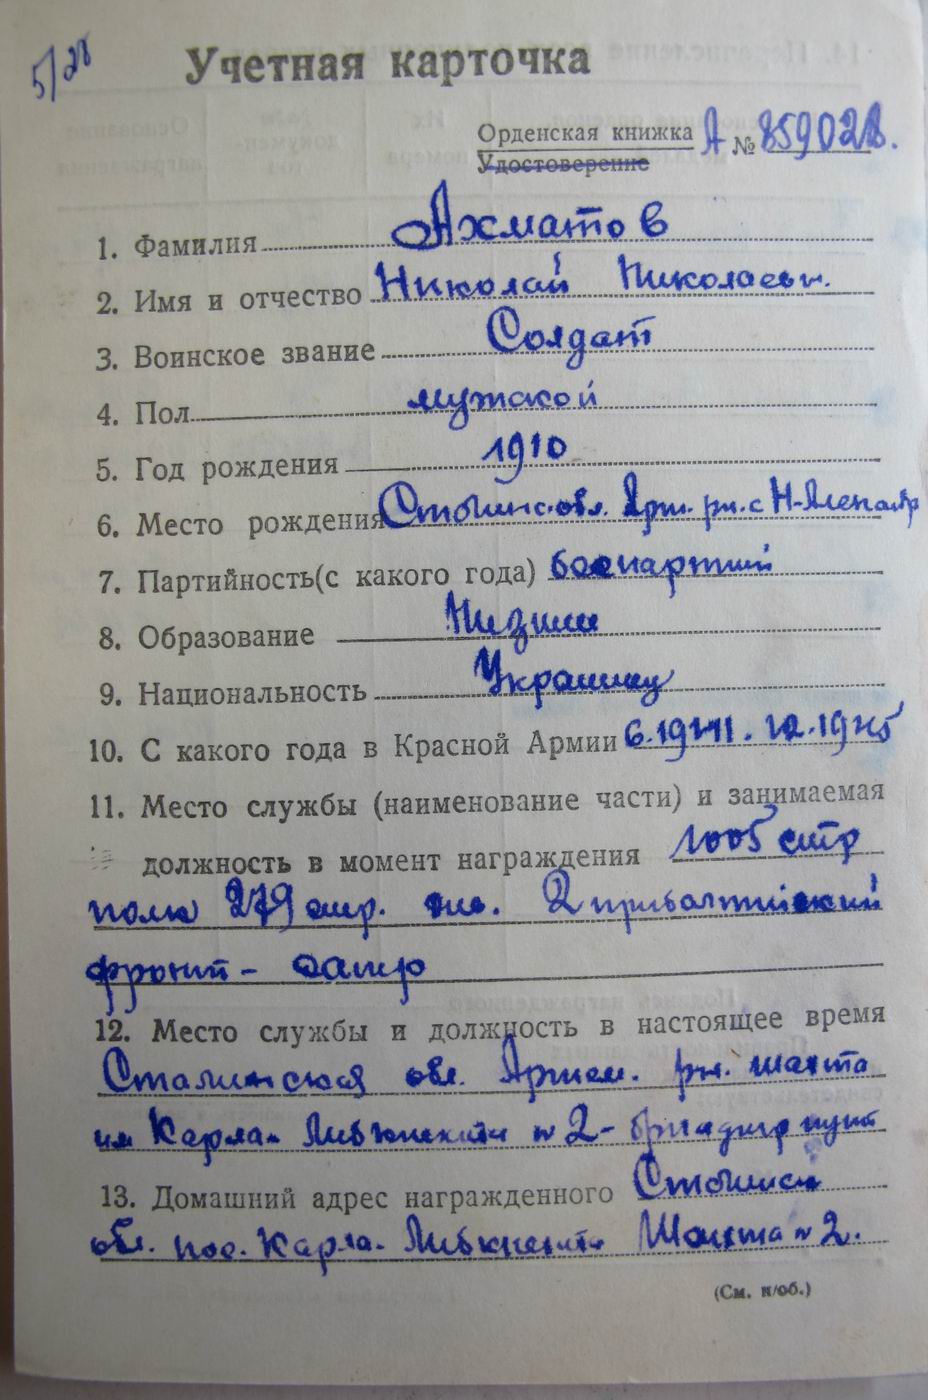 5/28
Учетная карточка
Орденская книжка А № 859028.
Удостоверение
1. Фамилия Ахматов
2. Имя и отчество Николай Николаевич.
3. Воинское звание Солдат
4. Пол мужской
5. Год рождения 1910
6. Место рождения обл. рн. с
7. Партийность(с какого года)
8. Образование Низшее
9. Национальность Украинец
10. С какого года в Красной Армии 6.1941.
11. Место службы (наименование части) и занимаемая
должность в момент награждения 1005 стр
полк 279 2 прибалтийский
фронт -
12. Место службы и должность в настоящее время
Сталинская обл. Артем. рн. шахта
им Карла Либкнехта № 2 - бригадир
13. Домашний адрес награжденного
обл. пос. Карла Либкнехта Шахта № 2.
(См. н/об.)